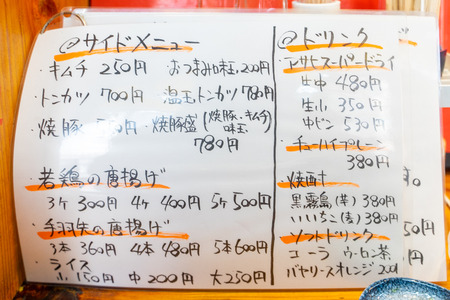 @サイドメニュー
・キムチ 250円 おつまみ味玉 200円
・トンカツ 700円 温玉トンカツ 780円
・焼豚 円 ・焼豚盛(焼豚、キムチ、味玉
780円
若鶏の唐揚げ
3ケ 300円 4ケ 400円 5ケ 500円
手羽先の唐揚げ
3本 360円 4本 480円 5本 600円
ライス
小 150円 中 200円 大 250円
@ドリンク
アサヒスーパードライ
生中 480円
生小 350円
中ビン 530円
チューハイプレーン
380円
焼酎
黒霧島(芋) 380円
いいちこ(麦) 380円
ソフトドリンク
コーラ ウーロン茶
バヤリースオレンジ 200